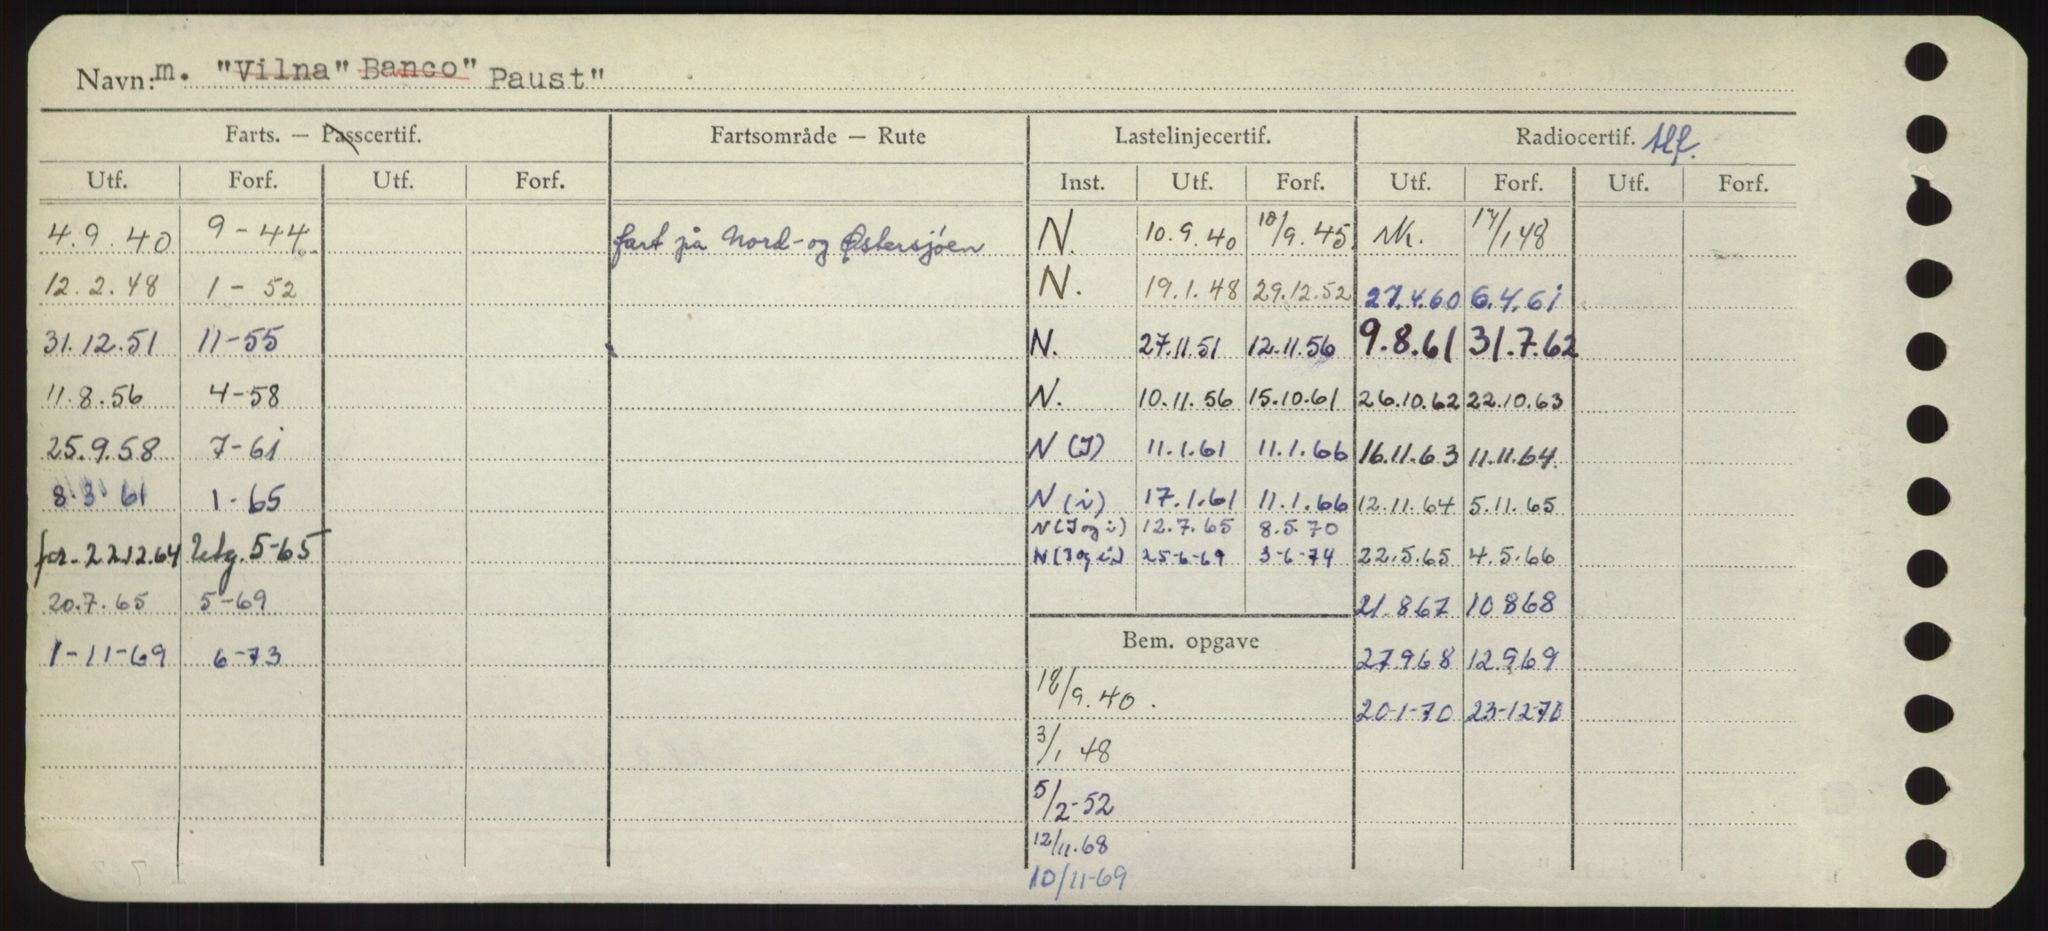 Navn: m. "Vilna" Banco" Paust"
Farts. — Passcertif. Fartsområde — Rute Lastelinjecertif. Radiocertif. tlf.
Utf. Forf. Utf. Forf. Inst. Utf. Forf. Utf. Forf. Utf. Forf.
4.9.40 9-44 fart på Nord- og Østersjøen N. 10.9.40 18/9.45 rk. 17/1 48
12.2.48 1-52 N. 19.1.48 29.12.52 27.4.60 6.4.61
31.12.51 11-55 N. 27.11.51 12.11.56 9.8.61 31.7.62
11.8.56 4-58 N. 10.11.56 15.10.61 26.10.62 22.10.63
25.9.58 7-61 N (I) 11.1.61 11.1.66 16.11.63 11.11.64
8.3 61 1-65 N (i) 17.1.61 11.1.66 12.11.64 5.11.65
N (I og i) 12.7.65 8.5.70
for. 22.12.64 Utg. 5-65 N (I og i) 25-6-69 3-6-74 22.5.65 4.5.66
20.7.65 5-69 21.867 10868
Bem. opgave
1-11-69 6-73 27968 12969
18/9.40. 20-1-70 23-12-70
3/1 48
5/2-52
12/11.68
10/11-69